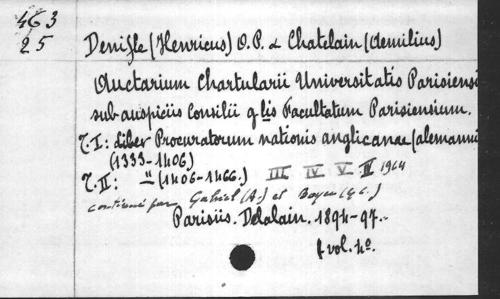 463
25
Denifle (Henricus) O.P. & Chatelain (Aemilius)
Auctarium Chartularii Universitatis Parisiensi
sub auspiciis Consilii glis Facultatum Parisiensium.
T.I: Liber Procuratorum nationis anglicanae (alemanni
(1333-1406)
T.II: " (1406-1466.) III IV V. 1964
continué par Gabriel (A.) et Boyce (G.C.)
Parisiis. Delalain. 1894-97.
vol. 4o.